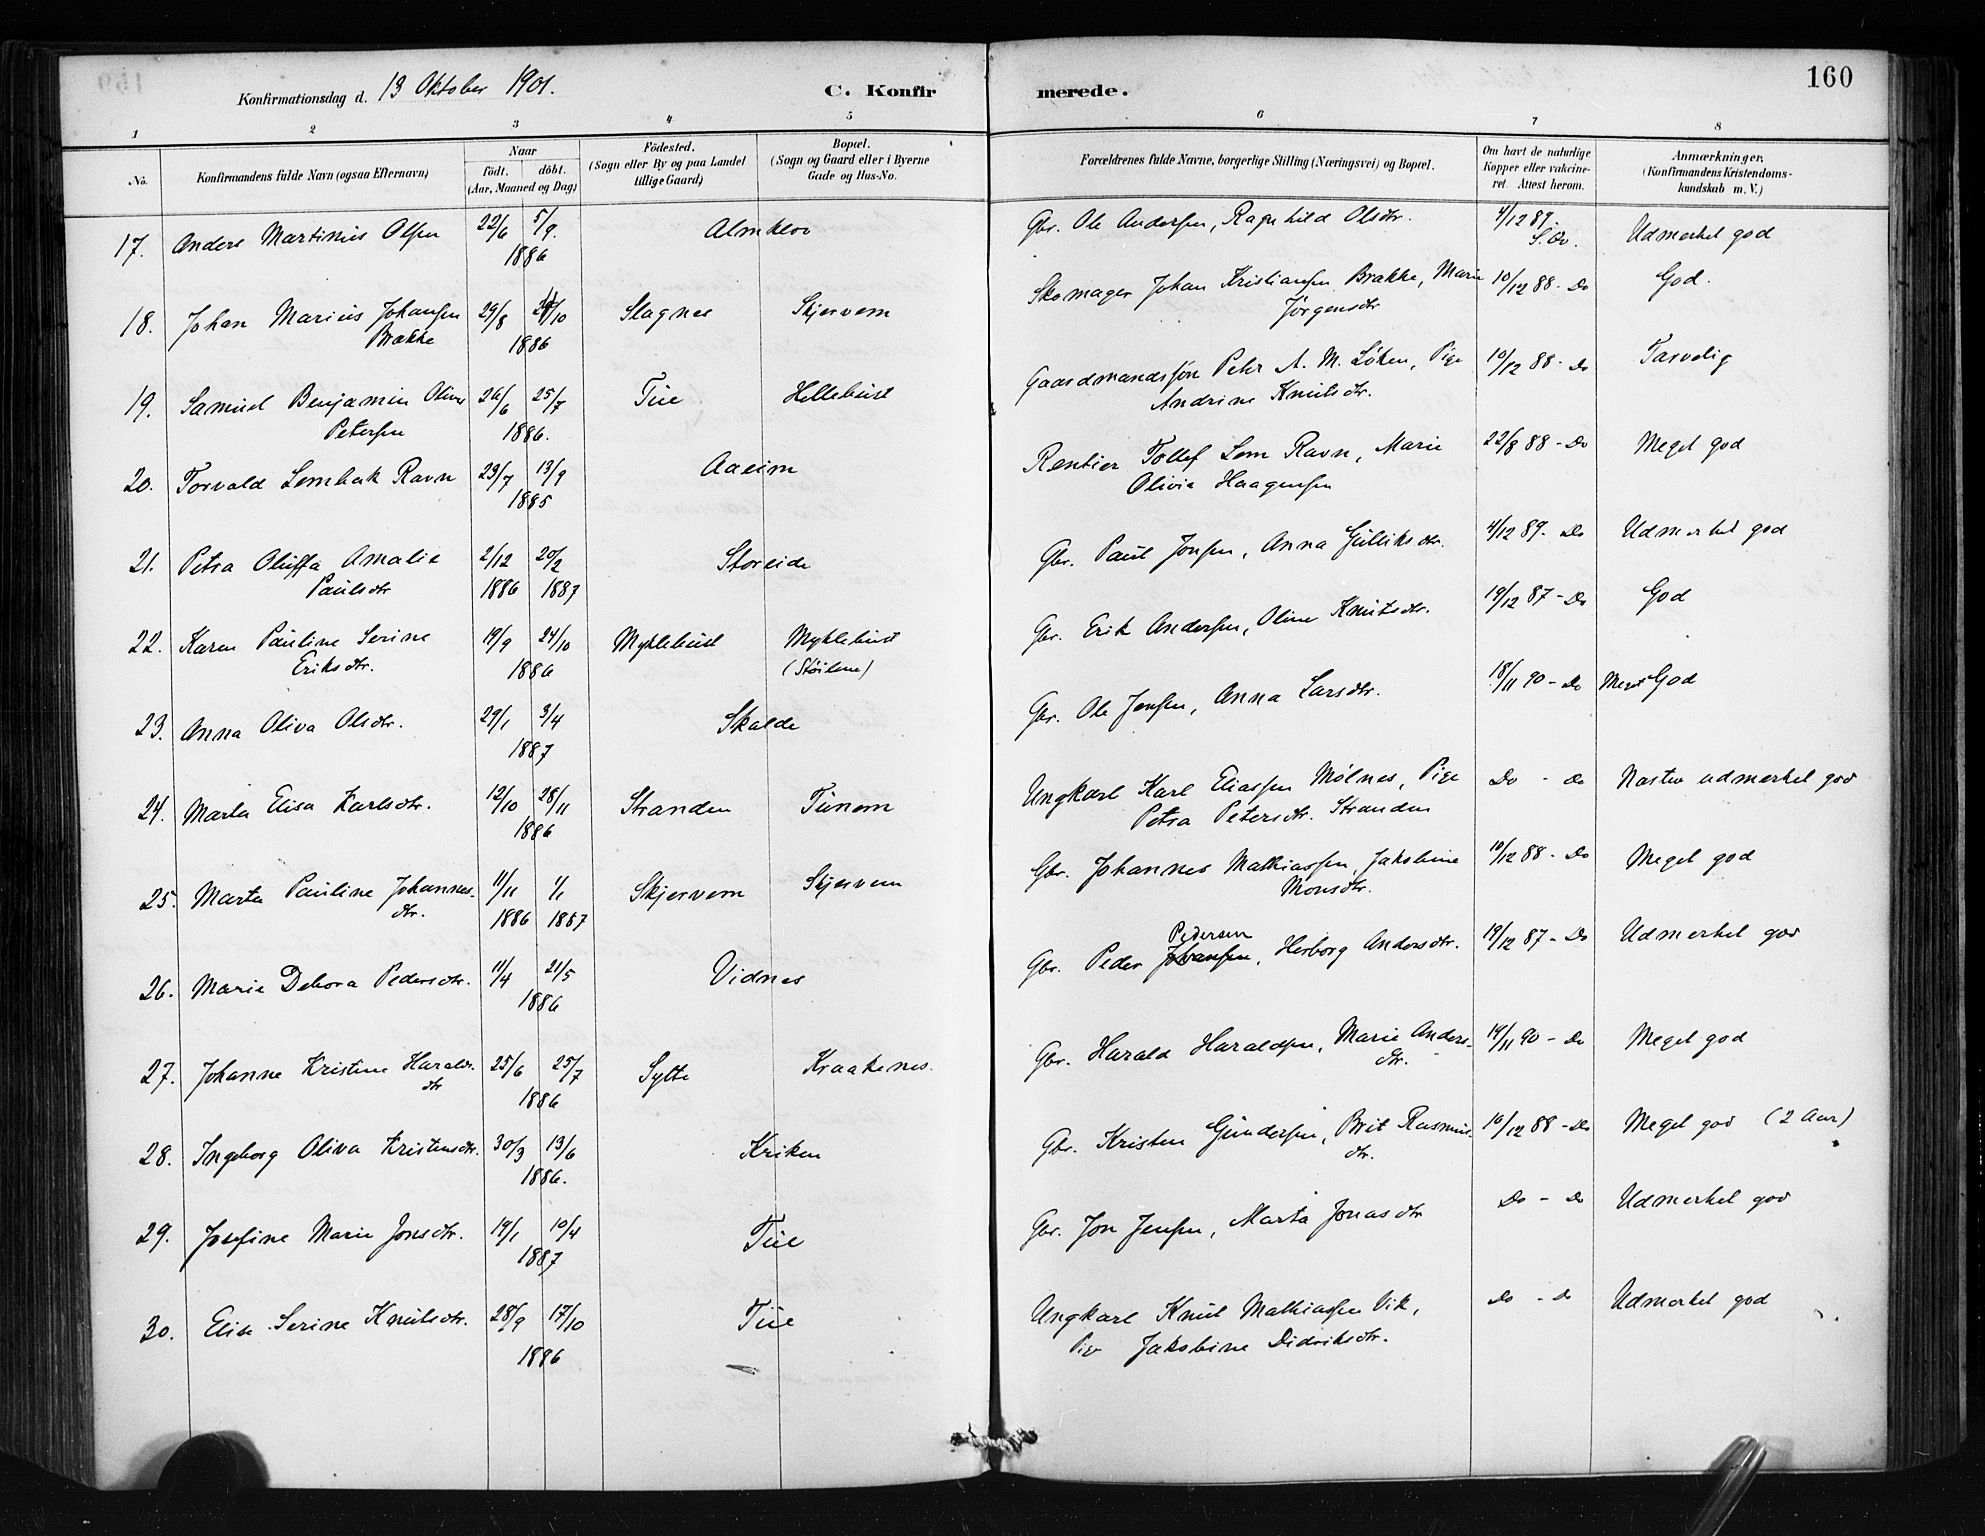 160
Konfirmationsdag d. 13 Oktober 1901.
C. Konfirmerede.
1 2 3 4 5 6 7 8
No.
Konfirmandens fulde Navn (ogsaa Efternavn)
Naar
födt. döbt.
(Aar, Maaned og Dag)
Födested.
(Sogn eller By og paa Landet
tillige Gaard)
Bopæl.
(Sogn og Gaard eller i Byerne
Gade og Hus-No.
Forældrenes fulde Navne, borgerlige Stilling (Næringsvei) og Bopæl.
Om havt de naturlige
Kopper eller vakcine-
ret. Attest herom.
Anmærkninger.
(Konfirmandens Kristendoms-
kundskab m. V.)
17. Anders Martinus Olsen 22/6 5/9. 1886 Almklov Gbr. Ole Andersen, Ragnhild Olsdtr. 4/12 89. S. Ov. Udmerket god
18. Johan Marius Johansen 29/8 /10 Slagnes Skjervem Skomager Johan Kristiansen Brække, Marie 10/12 88 - Do God.
Brække 1886 Jørgensdtr
19. Samuel Benjamin Oliver 26/6 25/7 Tue Hellebust Gaardmandssøn Peter A. M. Løken, Pige 10/12 88 - Do Tarvelig
Petersen 1886. Andrine Knutsdtr.
20. Torvald Lembak Ravn 23/7 13/9 1885 Aaeim Rentier Tollef Lem Ravn, Marie 22/8 88 - Do Meget god
Olivia Haagensen
21. Petra Oluffa Amalie 2/12 20/2 Storeide Gbr. Paul Jonsen, Anna Gulliksdtr. 4/12 89. Do Udmerket god
Paulsdtr 1886 1887
22. Karen Pauline Serine 19/9 24/10 Myklebust Myklebust Gbr. Erik Andersen, Oline Knutsdtr. 19/12 87 - Do God
Eriksdtr. 1886 (Støilene)
23. Anna Oliva Olsdtr. 29/1 3/4 1887 Skalde Gbr. Ole Jensen, Anna Larsdtr. 18/11 90 - Do Meget God
24. Marta Elisa Karlsdtr. 12/10 28/11 1886 Stranden Tunem Ungkarl Karl Eliassen Mølnes, Pige Do - do Næsten udmerket god
Petra Petersdtr. Stranden
25. Marta Pauline Johannes- 11/11 1/1 Skjervem Skjervem Gbr. Johannes Mathiassen, Jakobine 10/12 88 - Do Meget god
dtr. 1886 1887 Monsdtr.
26. Marie Debora Pedersdtr. 11/4 21/5 1886 Vidnes Gbr. Peder Johansen Pedersen, Herborg Andersdtr. 19/12 87 - Do Udmerket god
27. Johanne Kristine Haralds- 25/6 25/7 Sylte Kraakenes. Gbr. Harald Haraldsen, Marie Anders- 19/11 90 - Do Meget god
dtr 1886 dtr.
28. Ingeborg Oliva Kristensdtr. 30/3 13/6 1886. Kriken Gbr. Kristen Gundersen, Brit Rasmus- 10/12 88 - Do Meget god (2 Aar)
dtr.
29. Josefine Marie Jonsdtr. 19/1 10/4 1887 Tue Gbr. Jon Jensen, Marta Jonasdtr Do - Do Udmerket god
30. Elise Serine Knutsdtr. 28/9 17/10 1886 Tue Ungkarl Knut Mathiassen Vik, Do - Do Udmerket god
Pige Jakobine Didriksdtr.